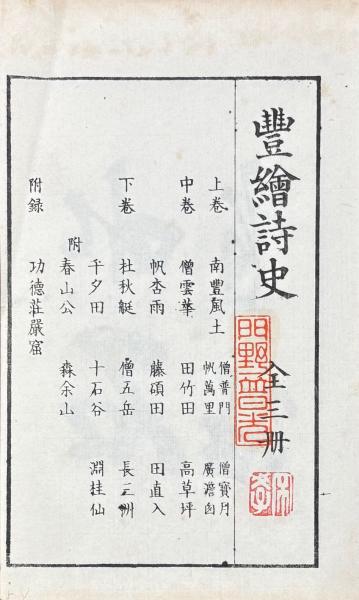 豐繪詩史
全三册
上卷 南豐風土 僧普門 僧寶月
帆萬里 廣澹囱
中卷 僧雲華 田竹田 高草坪
帆杏雨 藤碩田 田直入
下卷 杜秋艇 僧五岳 長三洲
平夕田 十石谷 淵桂仙
附 春山公 森余山
附録 功德莊嚴窟